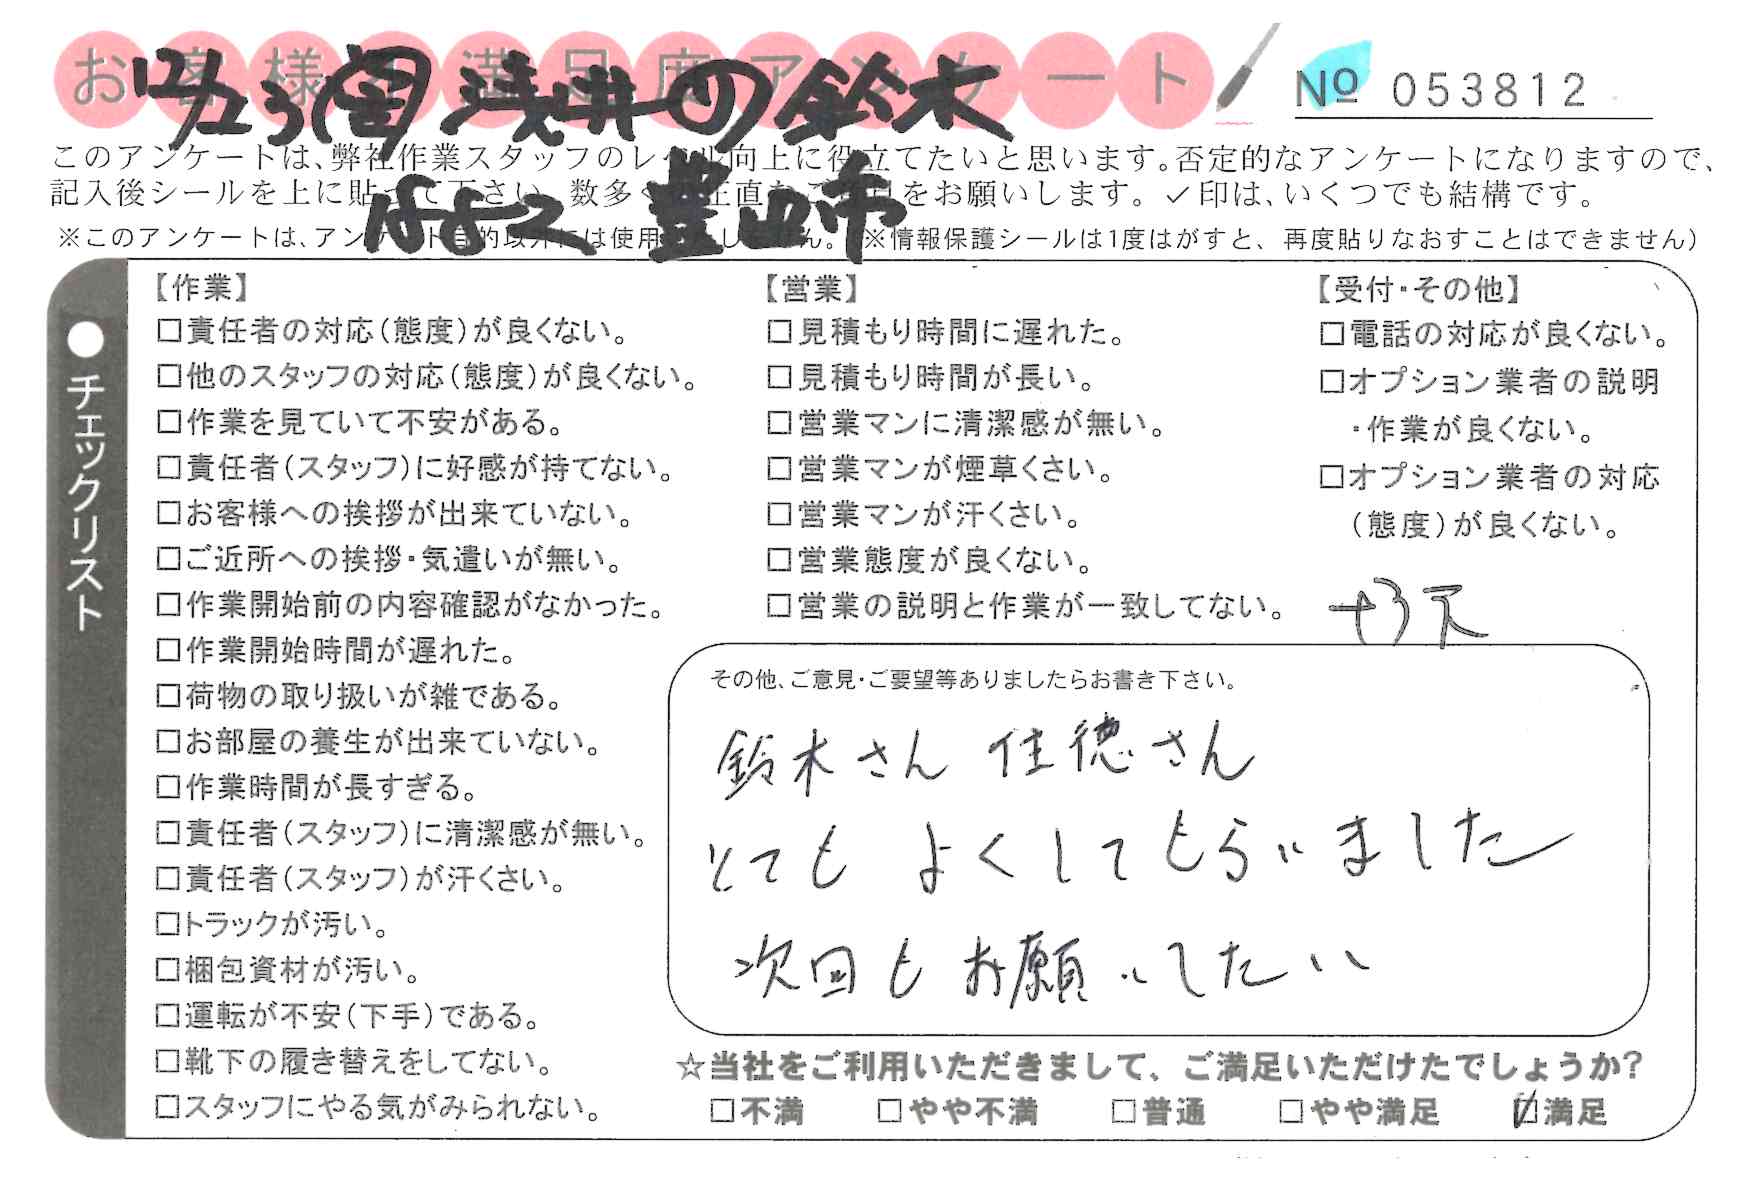 お客様の満足度アンケート
№ 053812
12/23(金) 浅井の鈴木
豊山市
このアンケートは、弊社作業スタッフのレベル向上に役立てたいと思います。否定的なアンケートになりますので、
記入後シールを上に貼って下さい。数多くの正直なご意見をお願いします。✓印は、いくつでも結構です。
※このアンケートは、アンケート目的以外には使用いたしません。（※情報保護シールは1度はがすと、再度貼りなおすことはできません）
●チェックリスト
【作業】
□責任者の対応（態度）が良くない。
□他のスタッフの対応（態度）が良くない。
□作業を見ていて不安がある。
□責任者（スタッフ）に好感が持てない。
□お客様への挨拶が出来ていない。
□ご近所への挨拶・気遣いが無い。
□作業開始前の内容確認がなかった。
□作業開始時間が遅れた。
□荷物の取り扱いが雑である。
□お部屋の養生が出来ていない。
□作業時間が長すぎる。
□責任者（スタッフ）に清潔感が無い。
□責任者（スタッフ）が汗くさい。
□トラックが汚い。
□梱包資材が汚い。
□運転が不安（下手）である。
□靴下の履き替えをしてない。
□スタッフにやる気がみられない。
【営業】
□見積もり時間に遅れた。
□見積もり時間が長い。
□営業マンに清潔感が無い。
□営業マンが煙草くさい。
□営業マンが汗くさい。
□営業態度が良くない。
□営業の説明と作業が一致してない。
【受付・その他】
□電話の対応が良くない。
□オプション業者の説明
・作業が良くない。
□オプション業者の対応
（態度）が良くない。
その他、ご意見・ご要望等ありましたらお書き下さい。
鈴木さん 佳徳さん
とても よくしてもらいました
次回も お願いしたい
☆当社をご利用いただきまして、ご満足いただけたでしょうか？
□不満 □やや不満 □普通 □やや満足 ☑満足